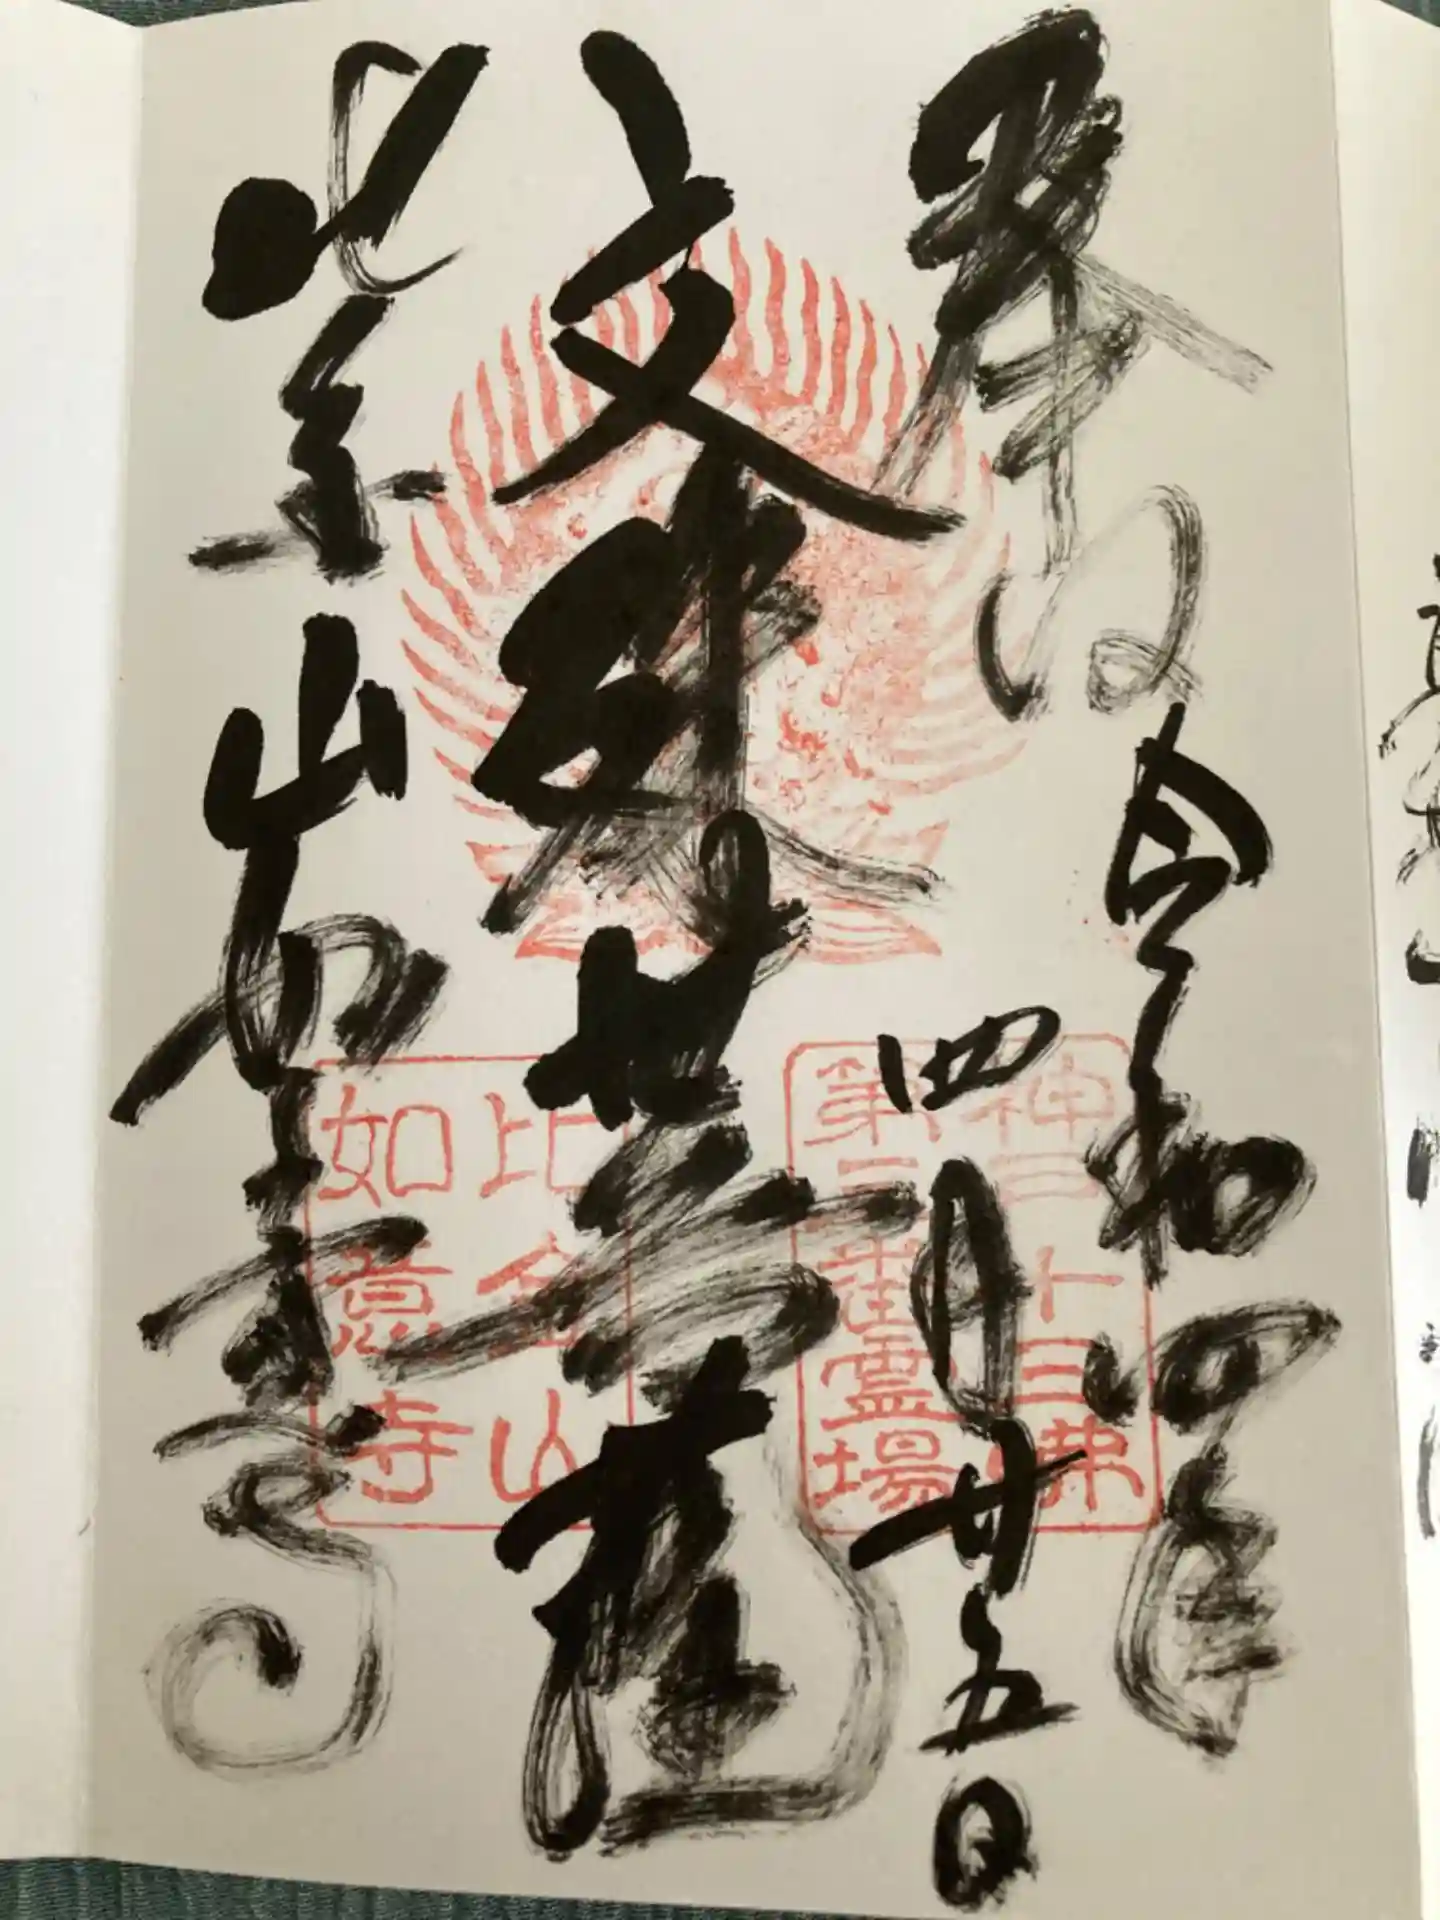 奉拝
令和四年
四月廿五日
文殊菩薩
比金山如意寺
神戸十三佛
第三番霊場
比金山
如意寺